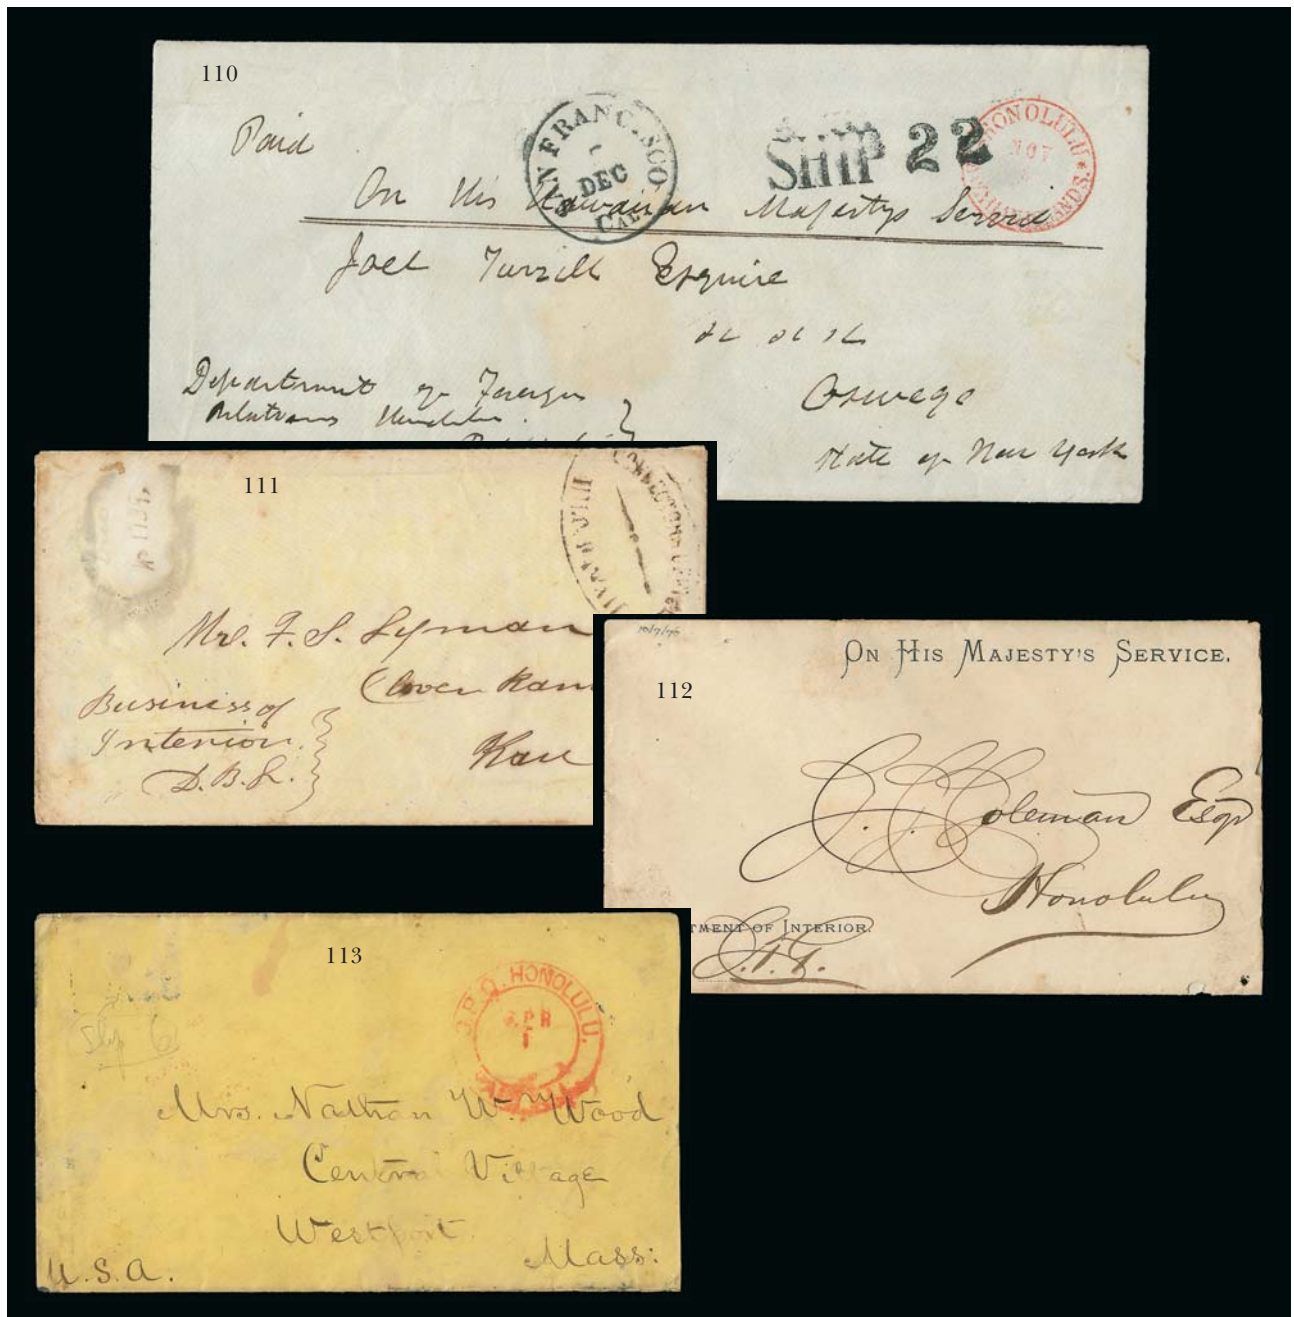 110
Paid
SAN FRANCISCO
DEC
CAL.
SHIP 22
HONOLULU
NOV
On His Hawaiian Majestys Service
Joel Turrill Esquire
Oswego
State of New York
Department of Foreign
Relations
111
Mr. F. S. Lyman
Kau
Business of
Interior.
112
ON HIS MAJESTY'S SERVICE.
Coleman Esqr
Honolulu
TMENT OF INTERIOR.
113
Ship 6
HONOLULU.
APR
1
Mrs. Nathan W. Wood
Central Village
Westport
Mass:
U.S.A.